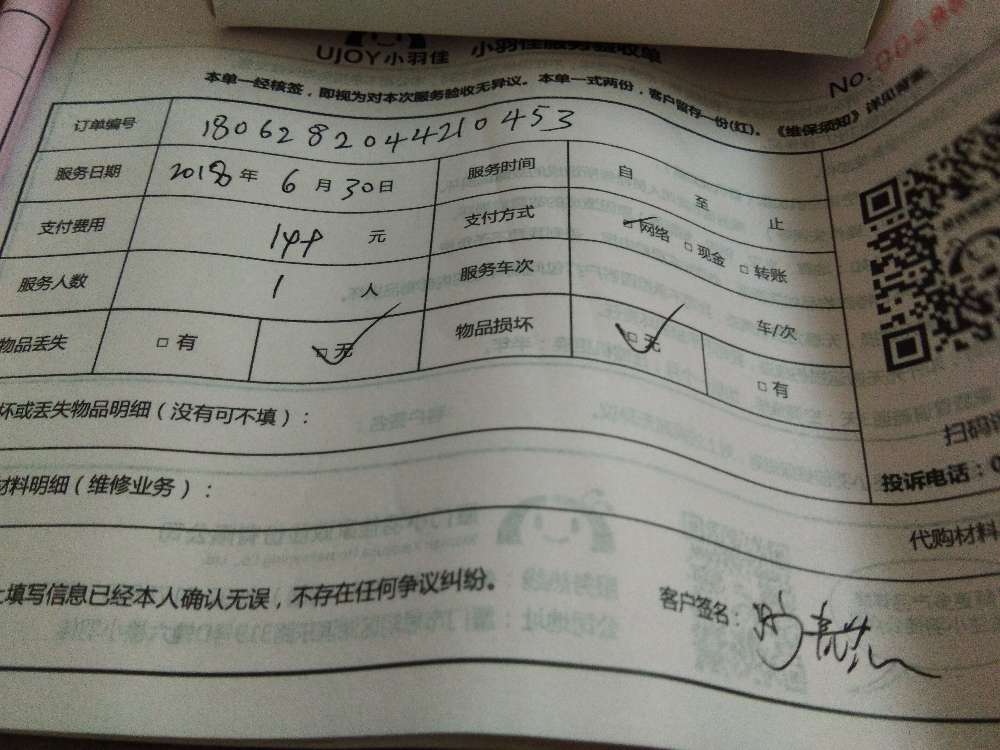 UJOY小羽佳 小羽佳服务验收单
No.
本单一经核签，即视为对本次服务验收无异议。本单一式两份，客户留存一份(红)。《维保须知》详见背面
订单编号 1806282044210453
服务日期 2018年 6月30日 服务时间 自 至 止
支付费用 199 元 支付方式 □网络 □现金 □转账
服务人数 1 人 服务车次 车/次
物品丢失 □有 □无 物品损坏 □无 □有
坏或丢失物品明细（没有可不填）：
扫码
投诉电话：0
材料明细（维修业务）：
代购材料
上填写信息已经本人确认无误，不存在任何争议纠纷。
客户签名：